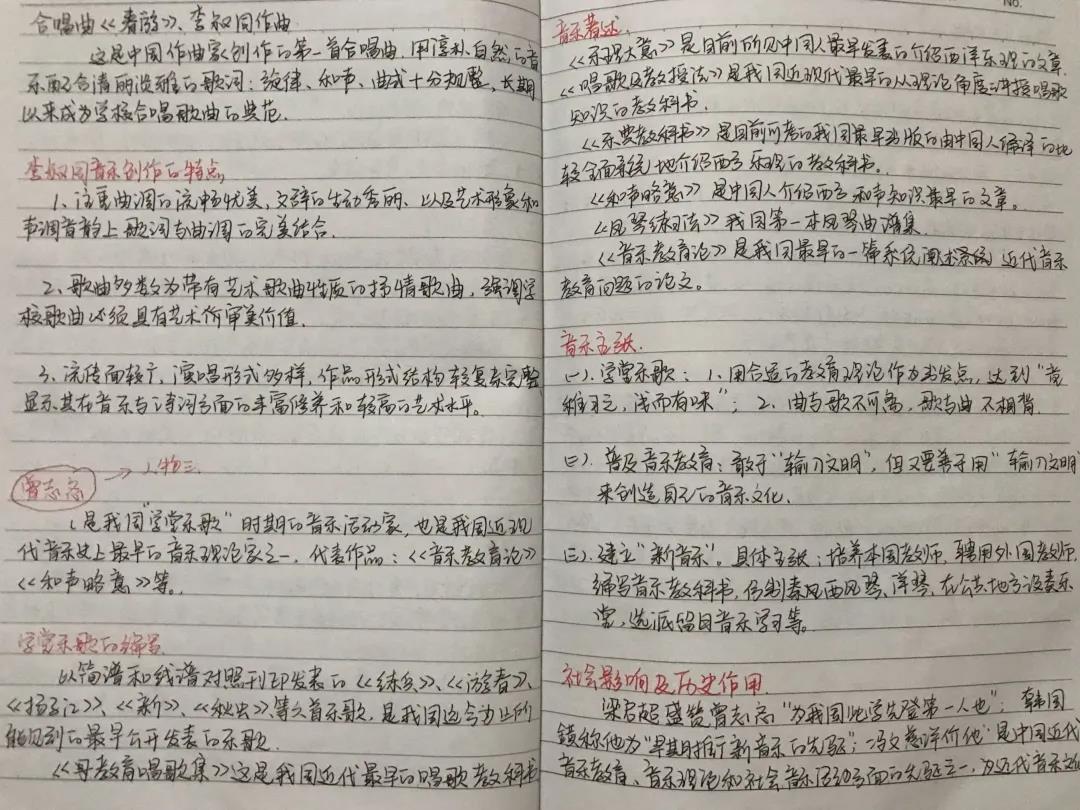 合唱曲《春游》、李叔同作曲
这是中国作曲家创作的第一首合唱曲,用淳朴、自然的音
乐配合清丽淡雅的歌词;旋律、和声、曲式十分规整,长期
以来成为学校合唱歌曲的典范.
李叔同音乐创作的特点
1、注重曲调的流畅优美、文辞的生动秀丽、以及艺术形象和
声调音韵上歌词与曲调的完美结合.
2、歌曲多数为带有艺术歌曲性质的抒情歌曲,强调学
校歌曲必须具有艺术价审美价值.
3、流传面较广,演唱形式多样,作品形式结构较复杂完整
显示其在音乐与诗词方面的丰富修养和较高的艺术水平。
曾志忞 → 人物三
是我国"学堂乐歌"时期的音乐活动家,也是我国近现
代音乐史上最早的音乐理论家之一,代表作品:《音乐教育论》
《和声略意》等。
学堂乐歌的编写
以简谱和线谱对照刊印发表的《练兵》、《游春》、
《扬子江》、《新》、《秋虫》等六首乐歌,是我国迄今为止所
能见到的最早公开发表的乐歌.
《哥教育唱歌集》这是我国近代最早的唱歌教科书
No.
音乐著述.
《乐理大意》是目前所见中国人最早发表的介绍西洋乐理的文章.
《唱歌及教授法》是我国近现代最早的从理论角度讲授唱歌
知识的教科书.
《乐典教科书》是目前可考的我国最早出版的由中国人编译的比
较全面系统地介绍西方乐理的教科书。
《和声略意》是中国人介绍西方和声知识最早的文章。
《风琴练习法》我国第一本风琴曲谱集
《音乐教育论》是我国最早的一篇系统阐述系统近代音乐
教育问题的论文。
音乐主张.
(一).学堂乐歌:1、用合适的教育理论作为出发点,达到"童
稚习之,浅而有味";2、曲与歌不可离,歌与曲不相背.
(二).普及音乐教育:敢于"输入文明",但又要善于用"输入文明"
来创造自己的音乐文化.
(三).建立"新音乐"。具体主张:培养本国教师,聘用外国教师,
编写音乐教科书,仿制泰风西风琴、洋琴,在公共地方设奏乐
堂,选派留日音乐学习等。
社会影响及历史作用
梁启超盛赞曾志忞"为我国此学先登第一人也";韩国
鐄称他为"早期推行新音乐的先驱";冯文慈评价他"是中国近代
音乐教育、音乐理论和社会音乐活动方面的先驱之一,为近代音乐文化